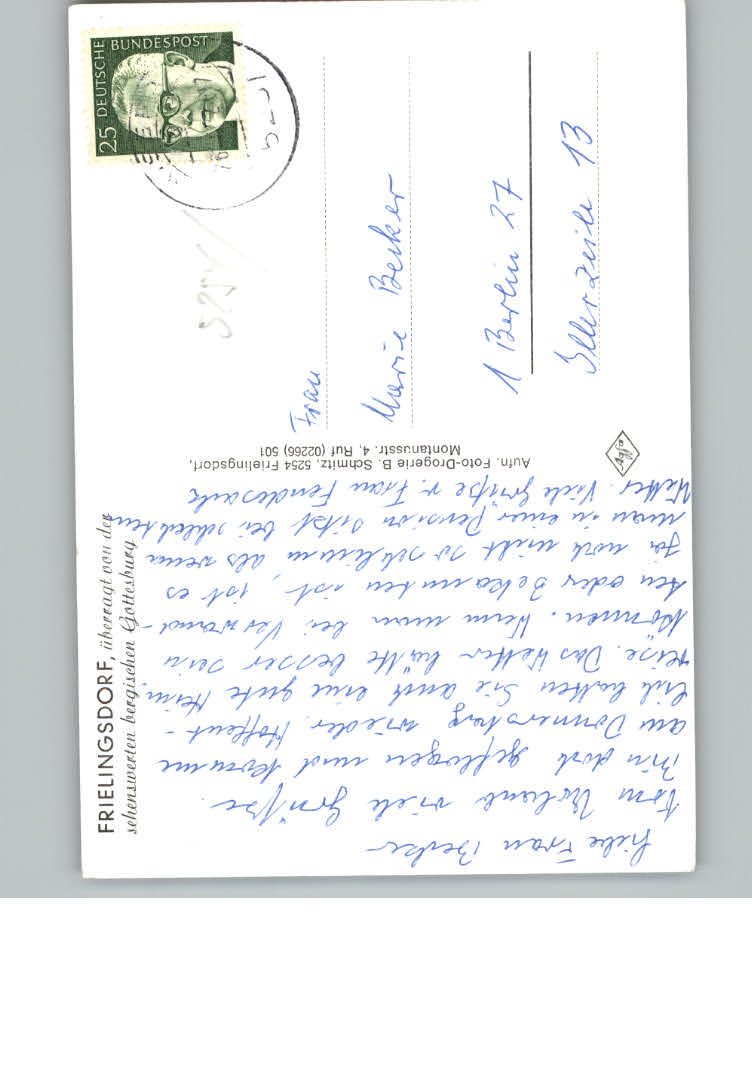 FRIELINGSDORF, überragt von der
sehenswerten bergischen Gottesburg
Liebe Frau Becker
Vom Urlaub viele Grüße.
Bin dort geflogen und komme
am Donnerstag wieder. Hoffent-
lich hatten Sie auch eine gute Heim-
reise. Das Wetter hätte besser sein
können. Wenn man bei Verwand-
ten oder Bekannten ist, ist es
ja noch nicht so schlimm als wenn
man in einer Pension sitzt bei schlechtem
Wetter. Viele Grüße v. Frau
Aufn. Foto-Drogerie B. Schmitz, 5254 Frielingsdorf,
Montanusstr. 4, Ruf (02266) 501
Agfa
25 DEUTSCHE BUNDESPOST
5251
5254
Frau
Marie Becker
1 Berlin 27
Illerzeile 13